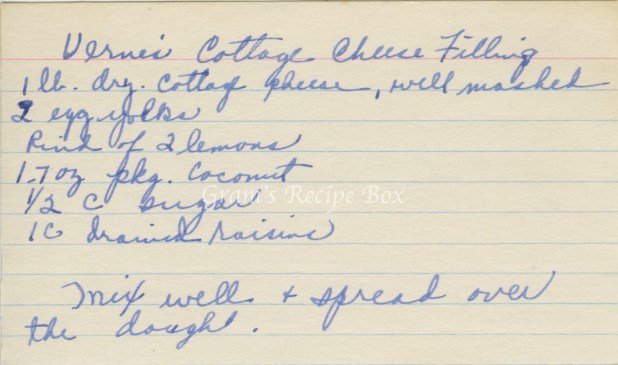 Verne's Cottage Cheese Filling
1 lb. dry. cottage cheese, well mashed
2 egg yolks
Rind of 2 lemons
1-7 oz pkg. Coconut
Gram's Recipe Box
1/2 C sugar
1 C drained raisins
Mix well & spread over
the dought.